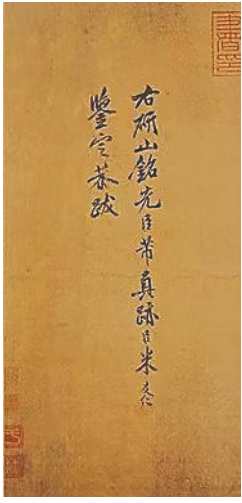 右研山銘先臣芾真跡臣米友仁
鑒定恭跋